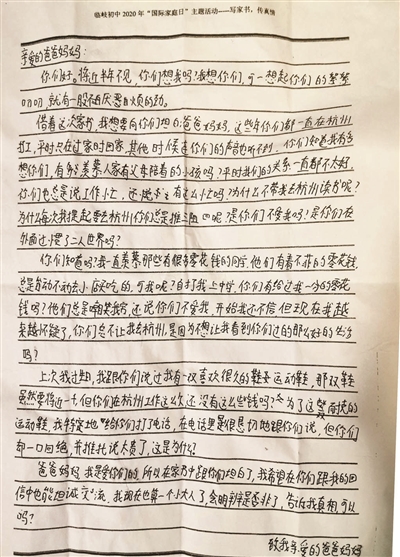 临岐初中2020年“国际家庭日”主题活动——写家书,传真情
亲爱的爸爸妈妈:
你们好。将近半年不见,你们想我吗?我想你们,可一想起你们的絮絮
叨叨,就有一股随厌恶且烦的劲。
借着这次家书,我想要向你们坦白:爸爸妈妈,这些年你们都一直在杭州
打工,平时只在过家时回家,其他时候连你们的声音也听不到,你们知道我有多
想你们,有多羡慕人家有父母陪着的小孩吗?平时我们的关系一直都不太好,
你们也总是说工作忙,
有这么忙吗?为什么不带我去杭州读书呢?
为什么每次我提起要去杭州你们总是推三阻四呢?是你们不爱我吗?是你们在
外面过惯了二人世界吗?
你们知道吗?我一直羡慕那些有很多零花钱的同学,他们有着不菲的零花钱,
总是动不动去小店买吃的,可我呢?自打我上中学,你们有给过我一分的零花
钱吗?他们总是嘲笑我穷,还说你们不爱我,开始我还不信,但现在我越
来越怀疑了,你们总不让我去杭州,是因为不想让我看到你们过的那么好的生活
吗?
上次我过生日,我跟你们说过我有一双喜欢很久的鞋子,运动鞋,那双鞋
虽然要将近一千,但你们在杭州工作这么久,还没有这么些钱吗?为了这双
运动鞋,我特意地给你们打了电话,在电话里是很恳切地跟你们说,但你们
却一口回绝,并推托说太贵了,这是为什么?
爸爸妈妈,我是爱你们的,所以在家书中跟你们坦白了,我希望在你们跟我的回
信中也能坦诚交流,我现在也算一个小大人了,会明辨是非了,告诉我真相,可以
吗?
致我亲爱的爸爸妈妈